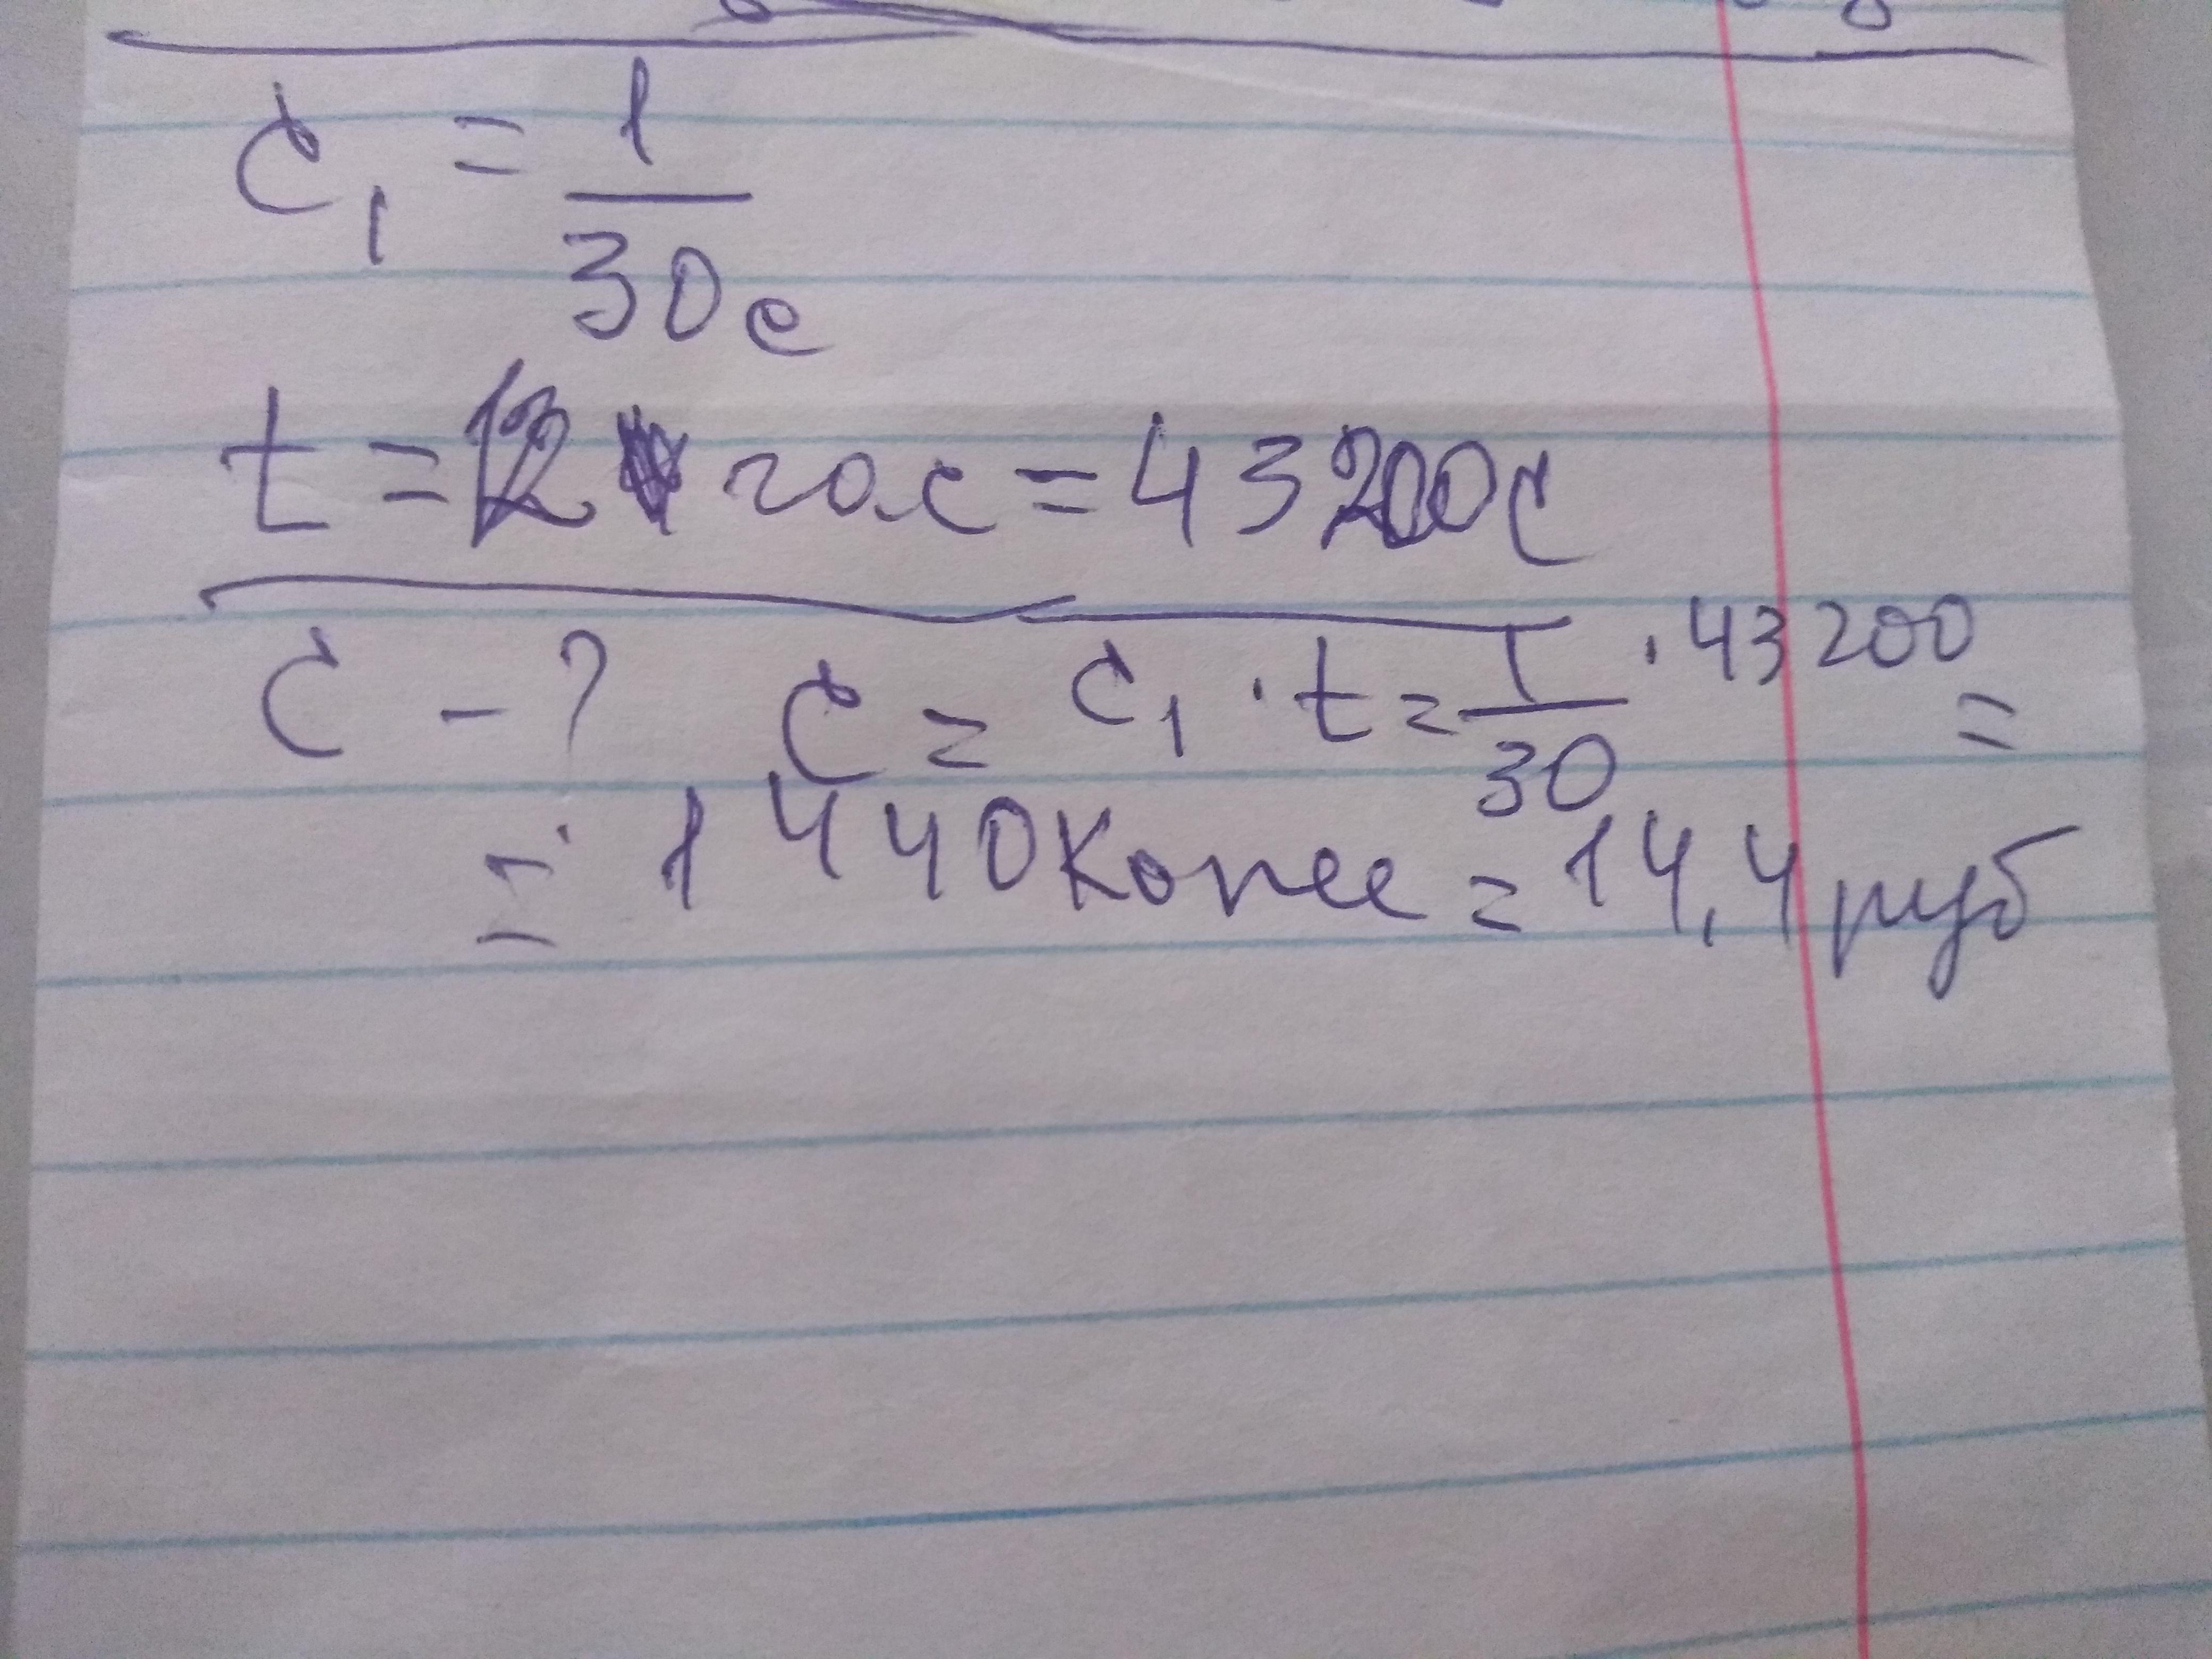 C₁ = 1/30c
t = 12 час = 43200c
C - ? C = C₁ · t = 1/30 · 43200 =
= 1440 Копее = 14,4 руб